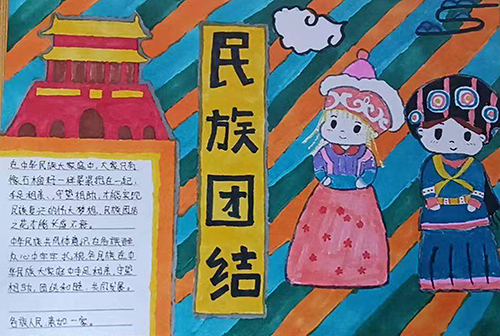 民族团结
在中华民族大家庭中,大家只有
像石榴籽一样紧紧抱在一起,
手足相亲、守望相助,才能实现
民族复兴的伟大梦想,民族团结
之花才能长盛不衰。
中华民族共同体意识在各族群
众心中牢牢扎根,各民族在中
华民族大家庭中手足相亲,守望
相助,团结和睦,共同发展。
各族人民亲如一家。